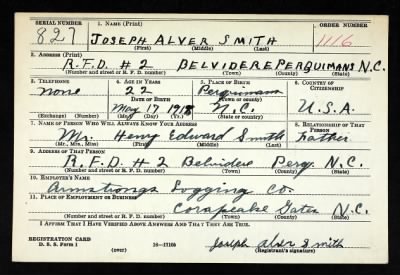 SERIAL NUMBER 1. NAME (Print) ORDER NUMBER
827 JOSEPH ALVER SMITH 1116
(First) (Middle) (Last)
2. ADDRESS (Print)
R.F.D. #2 BELVIDERE PERQUIMANS N.C.
(Number and street or R. F. D. number) (Town) (County) (State)
3. TELEPHONE 4. AGE IN YEARS 5. PLACE OF BIRTH 6. COUNTRY OF CITIZENSHIP
none 22 Perquimans
DATE OF BIRTH (Town or county)
May 17 1918 N.C. U.S.A.
(Exchange) (Number) (Mo.) (Day) (Yr.) (State or country)
7. NAME OF PERSON WHO WILL ALWAYS KNOW YOUR ADDRESS 8. RELATIONSHIP OF THAT PERSON
Mr. Henry Edward Smith Father
(Mr., Mrs., Miss) (First) (Middle) (Last)
9. ADDRESS OF THAT PERSON
R.F.D. #2 Belvidere Perq. N.C.
(Number and street or R. F. D. number) (Town) (County) (State)
10. EMPLOYER'S NAME
Armstrongs Logging Co.
11. PLACE OF EMPLOYMENT OR BUSINESS
Corapeake Gates N.C.
(Number and street or R. F. D. number) (Town) (County) (State)
I AFFIRM THAT I HAVE VERIFIED ABOVE ANSWERS AND THAT THEY ARE TRUE.
REGISTRATION CARD
D. S. S. Form 1 (over) 16—17105 Joseph Alver Smith
(Registrant's signature)